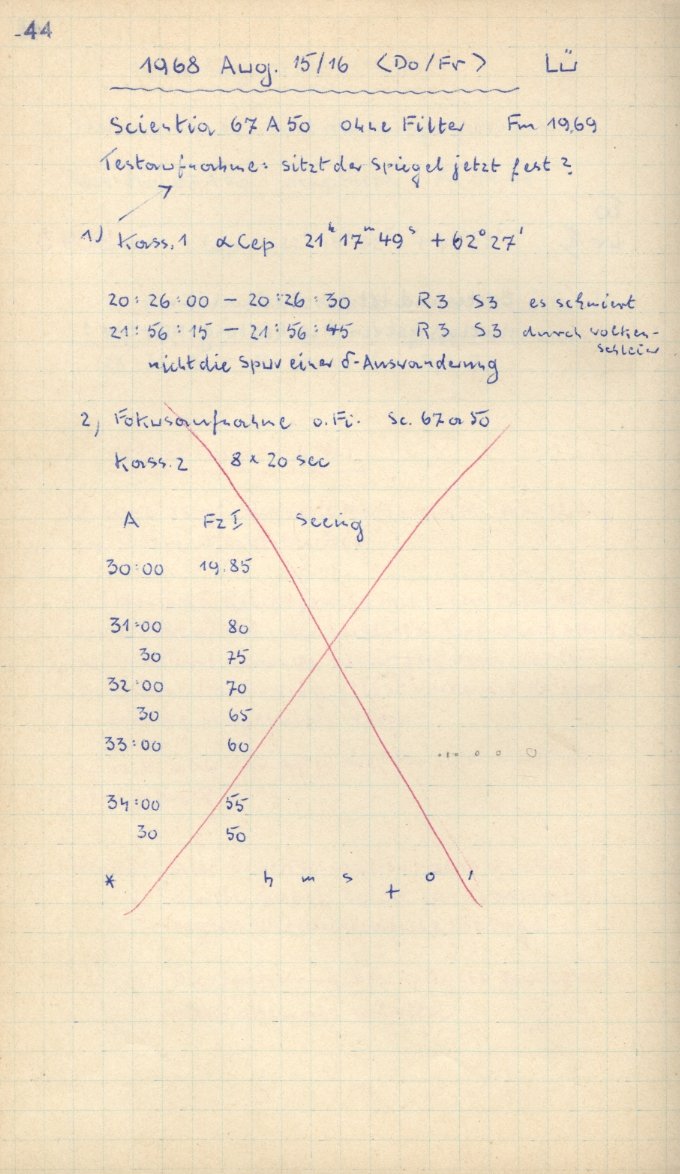 44
1968 Aug. 15/16 (Do/Fr) Lü
Scientia 67 A 50 ohne Filter Fm 19,69
Testaufnahme: sitzt der Spiegel jetzt fest?
1) Kass. 1 α Cep 21h 17m 49s + 62° 27'
20:26:00 – 20:26:30 R3 S3 es schmiert
21:56:15 – 21:56:45 R3 S3 durch Wolken-
schleier
nicht die Spur einer δ-Auswanderung
2) Fokusaufnahme o. Fi. Sc. 67 a 50
Kass. 2 8 x 20 sec
A Fz I Seeing
30:00 19.85
31:00 80
30 75
32:00 70
30 65
33:00 60
34:00 55
30 50
* h m s + ° '